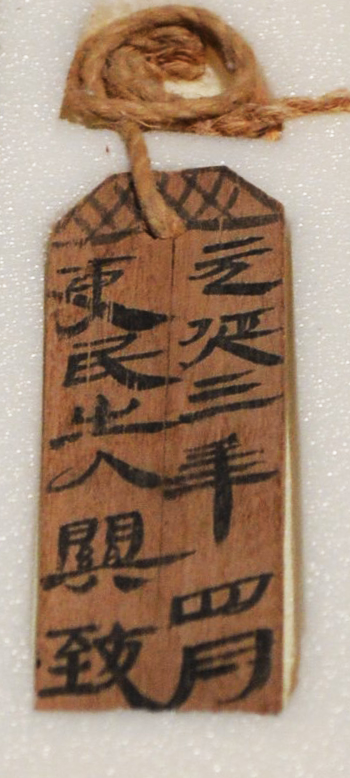 元延三年四月
吏民出入關致